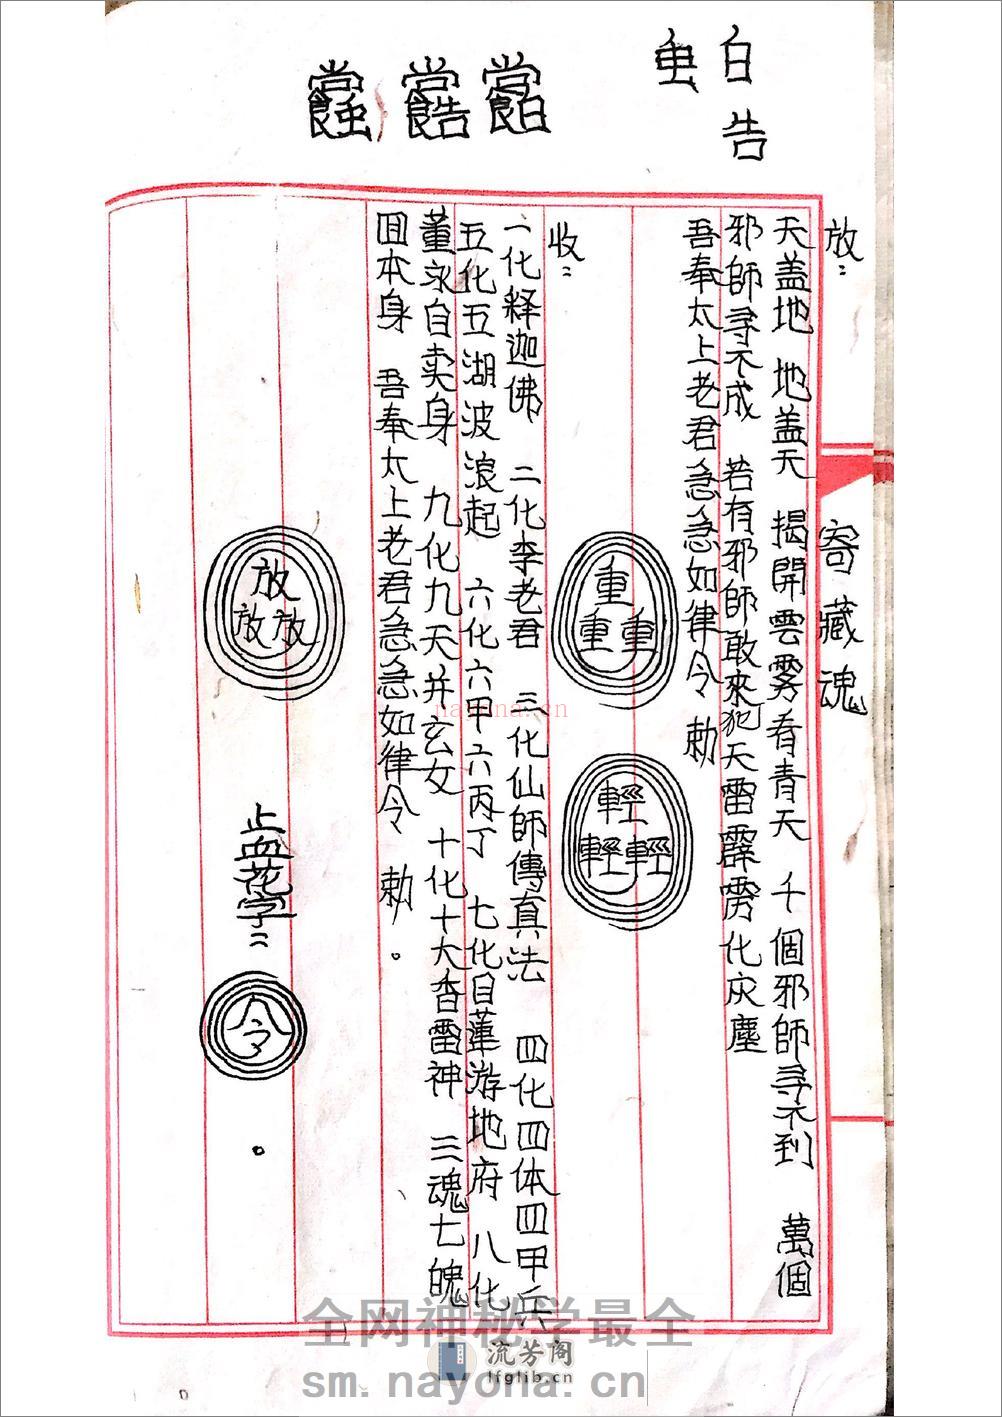 白告
寄藏魂
放：
天盖地 地盖天 揭開雲雾看青天 千個邪師寻不到 萬個
邪師寻不成 若有邪師敢來犯天雷霹雳化灰塵
吾奉太上老君急急如律令 勅
重
重重
輕
輕輕
收：
一化释迦佛 二化李老君 三化仙師傳真法 四化四体四甲兵
五化五湖波浪起 六化六甲六丙丁 七化目蓮游地府 八化
董永自卖身 九化九天并玄女 十化十大杳雷神 三魂七魄
回本身 吾奉太上老君急急如律令 勅。
放
放放
止血花字：
令
。
nayona.cn
全网神秘学最全
流芳阁
lfglib.cn
sm.nayona.cn